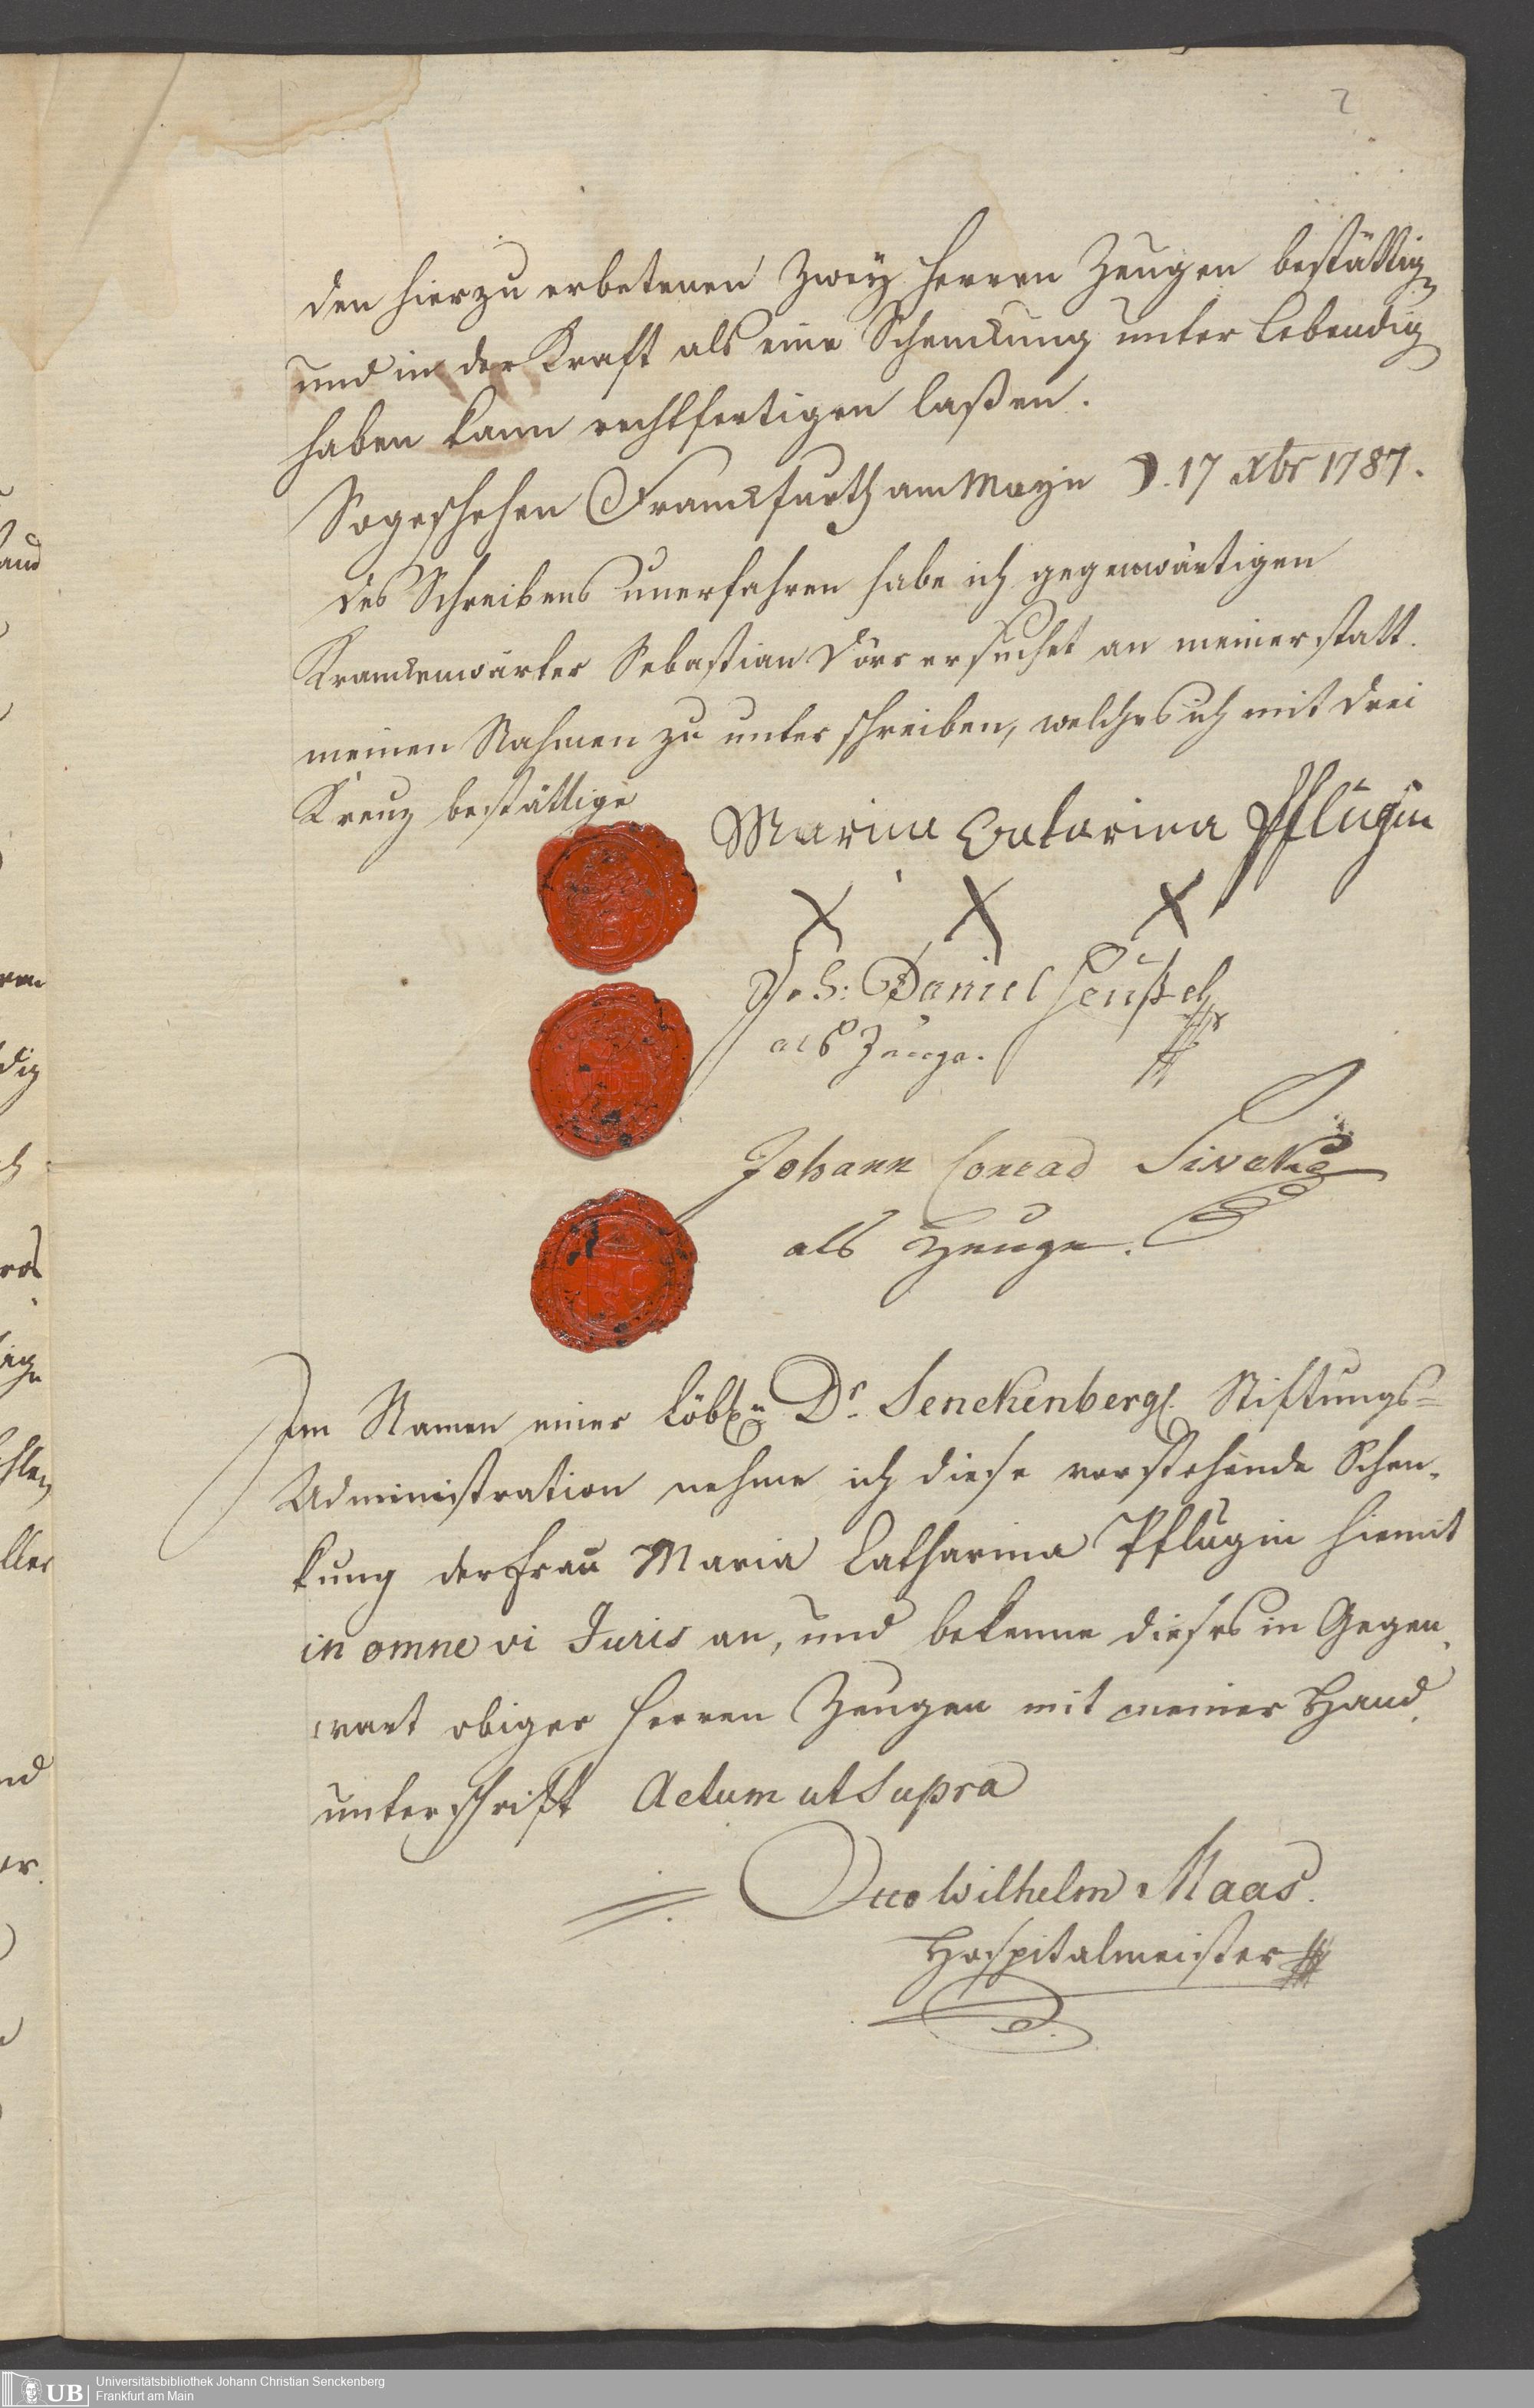 2
den hierzu erbetenen zwey Herren Zeugen bestättig
und in der Kraft als eine Schenckung unter Lebendig
haben kann rechtfertigen laßen.
So geschehen Franckfurth am Mayn D. 17 Xbr 1787.
des Schreibens unerfahren habe ich gegenwärtigen
Kranckenwärter Sebastian Dörr ersuchet an meiner statt
meinen Nahmen zu unterschreiben, welches ich mit drei
Kreuz bestättige
Maria Catarina Pflügin
X X X
Joh: Daniel
als Zeuge.
Johann Conrad
als Zeuge.
Im Namen einer Löbln Dr. Senckenbergl. Stiftungs=
Administration nehme ich diese vorstehende Schen-
kung der Frau Maria Catharina Pflügin hiemit
in omne vi Juris an, und bekenne dieses in Gegen
wart obiger Herren Zeugen mit meiner Hand
unterschrift Actum ut Supra
Otto Wilhelm Maas.
Hospitalmeister
UB
Universitätsbibliothek Johann Christian Senckenberg
Frankfurt am Main